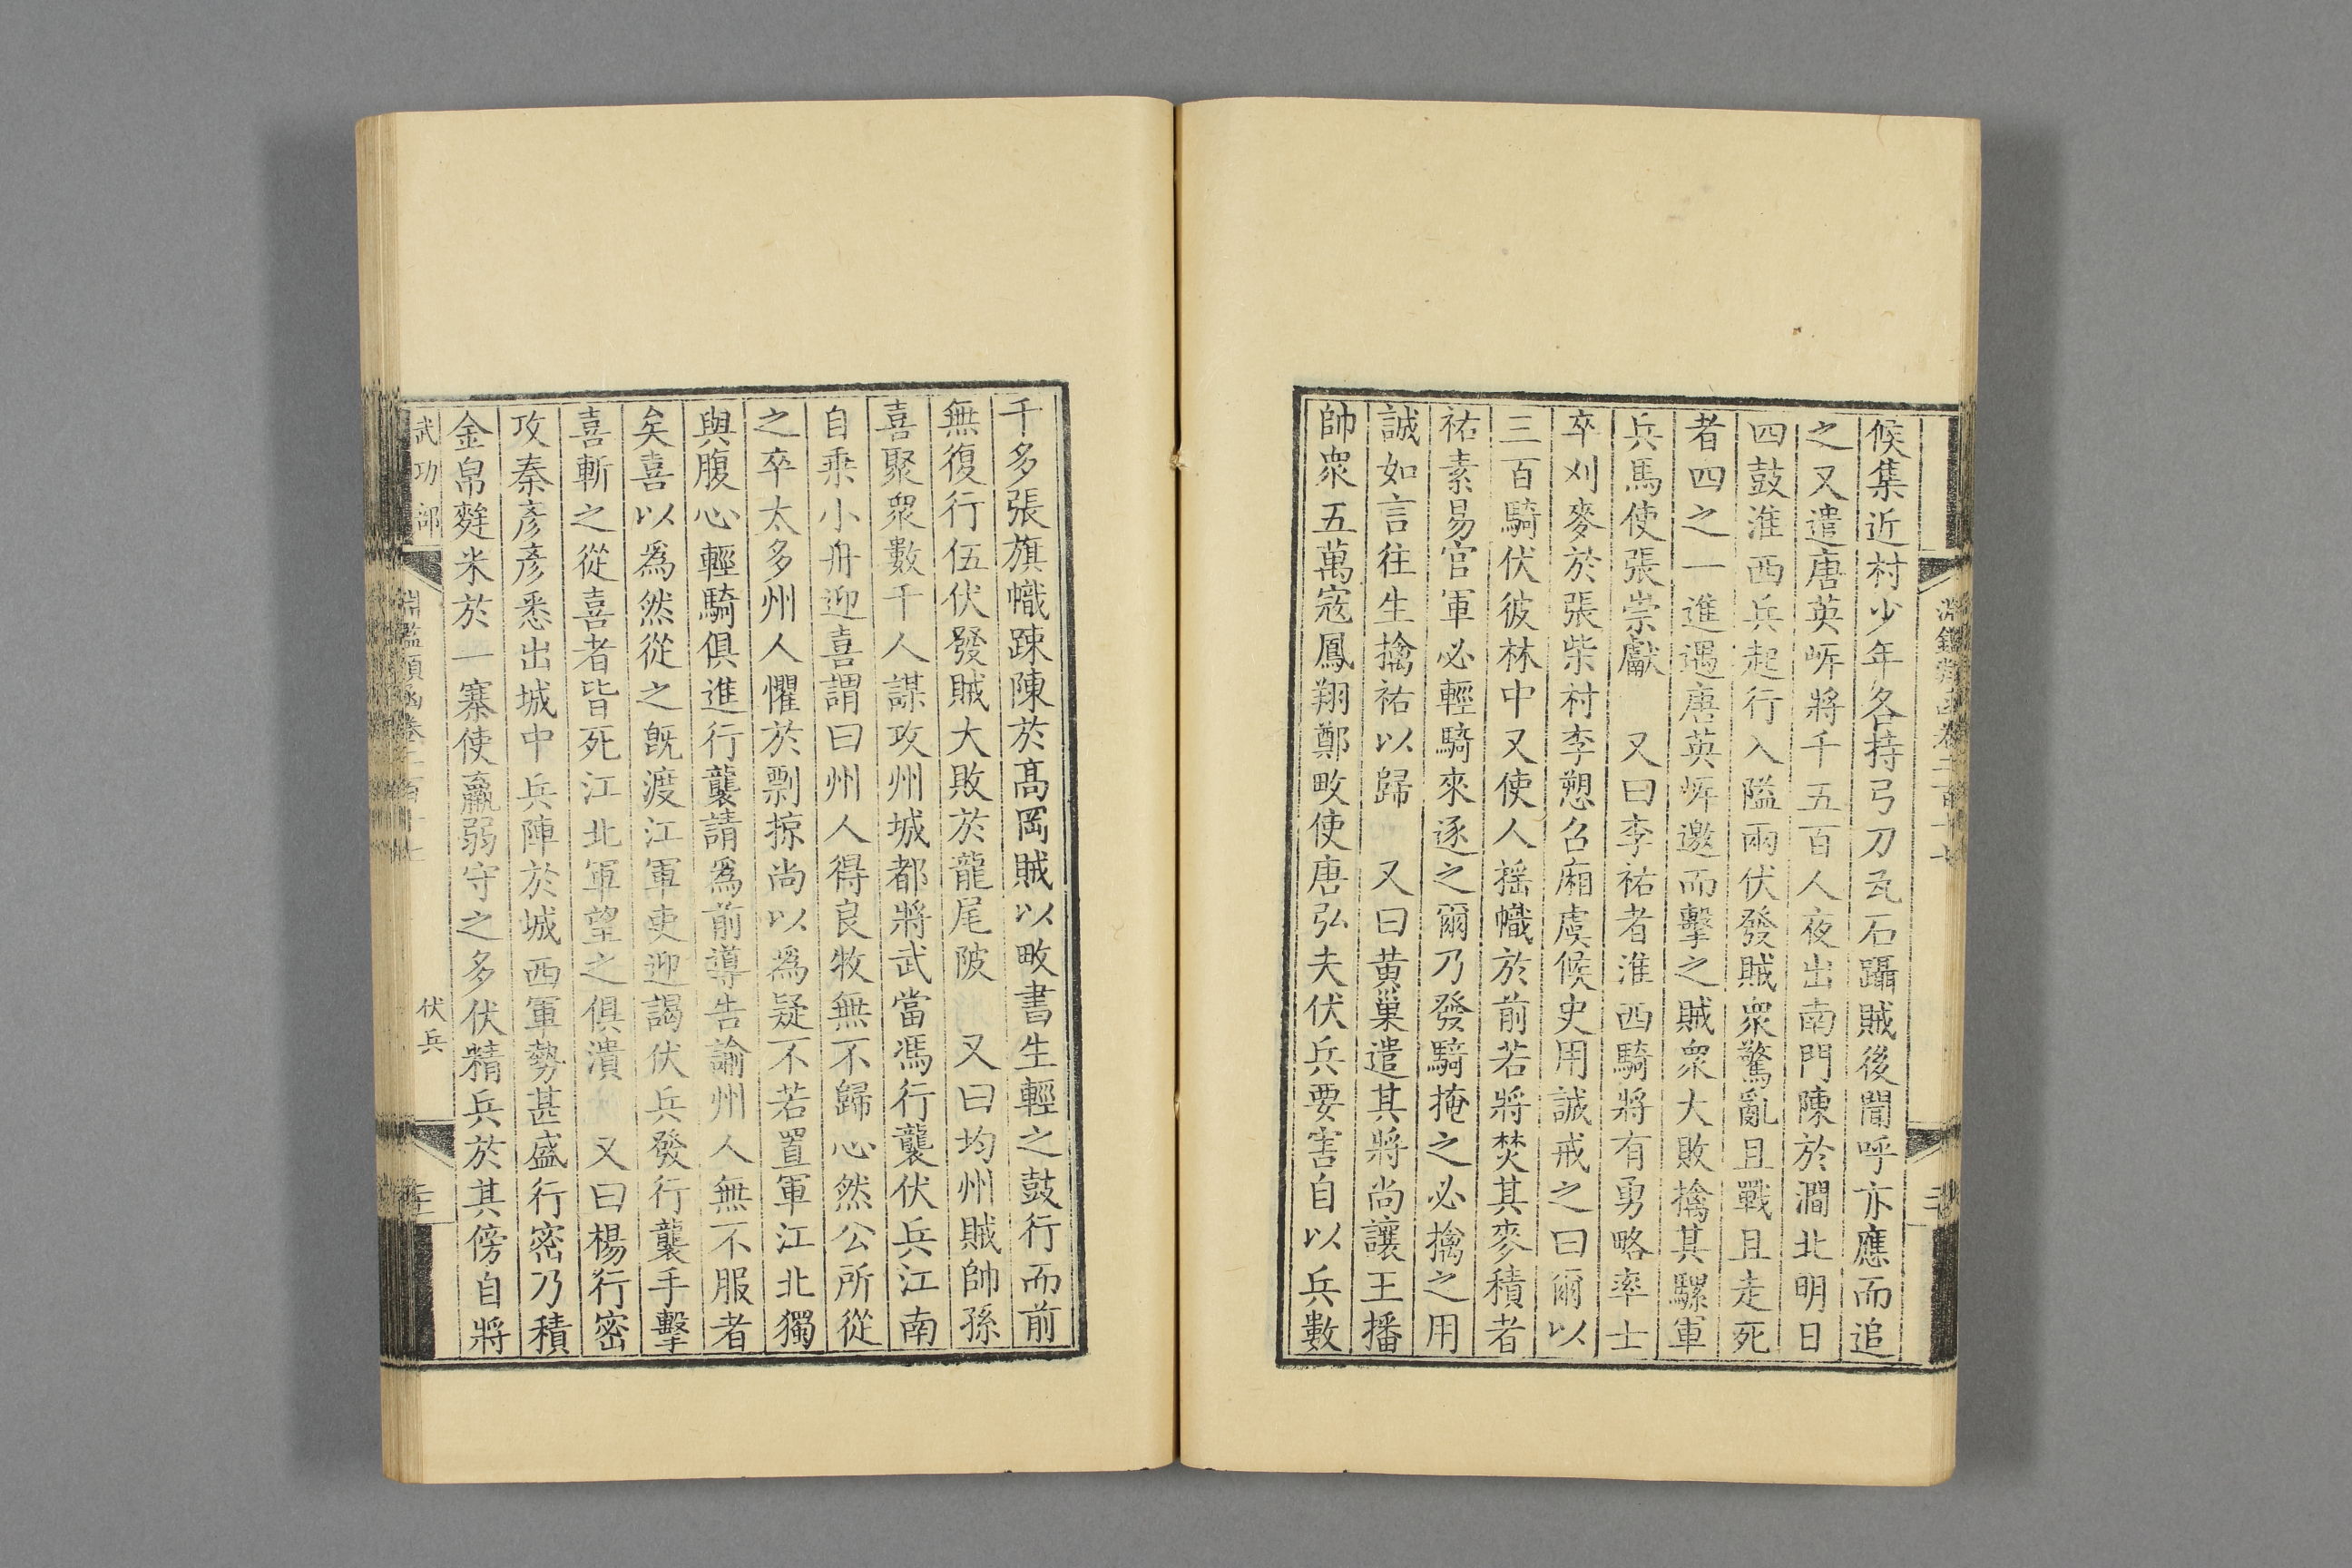 候集近村少年各持弓刀瓦石躡賊後聞呼亦應而追
之又遣唐英㟁將千五百人夜出南門陳於澗北明日
四鼓淮西兵起行入隘兩伏發賊衆驚亂且戰且走死
者四之一進遇唐英㟁邀而擊之賊衆大敗擒其騾軍
兵馬使張崇獻 又曰李祐者淮西騎將有勇略率士
卒刈麥於張柴村李愬召廂虞候史用誠戒之曰爾以
三百騎伏彼林中又使人摇幟於前若將焚其麥積者
祐素易官軍必輕騎來逐之爾乃發騎掩之必擒之用
誠如言往生擒祐以歸 又曰黄巢遣其將尚讓王播
帥衆五萬寇鳳翔鄭畋使唐弘夫伏兵要害自以兵數
千多張旗幟踈陳於髙岡賊以畋書生輕之鼓行而前
無復行伍伏發賊大敗於龍尾陂 又曰均州賊帥孫
喜聚衆數千人謀攻州城都將武當馮行襲伏兵江南
自乘小舟迎喜謂曰州人得良牧無不歸心然公所從
之卒太多州人懼於剽掠尚以爲疑不若置軍江北獨
與腹心輕騎俱進行襲請爲前導告諭州人無不服者
矣喜以爲然從之旣渡江軍吏迎謁伏兵發行襲手擊
喜斬之從喜者皆死江北軍望之俱潰 又曰楊行密
攻秦彥彥悉出城中兵陣於城西軍勢甚盛行密乃積
金帛麰米於一寨使羸弱守之多伏精兵於其傍自將
武功部
淵鑑類函卷二百十七
伏兵